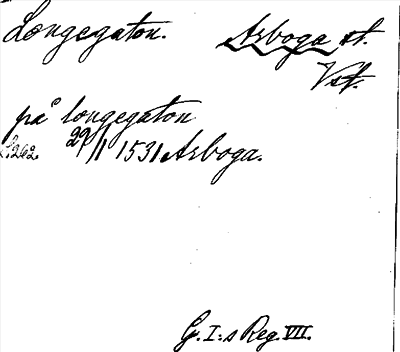 Longegaton. Arboga st.
Vstm.
på longegaton
S. 262. 29/1 1531 Arboga.
G. I:s Reg. VII.